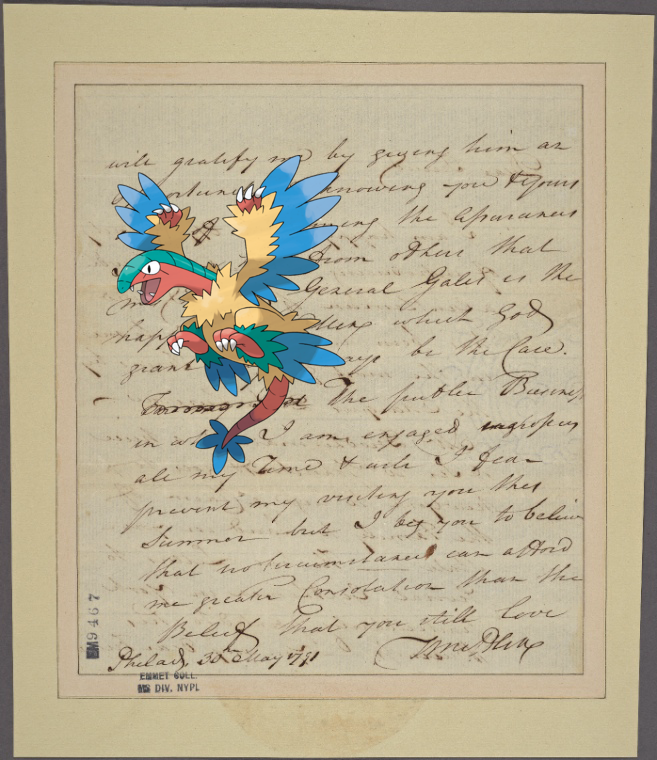 will gratify me by giving him an
knowing you & yours
the assurances
from others that
General Gates is the
which God
grant be the Case.
The public Business
in I am engaged engrosses
all my Time & will I fear
prevent my visiting you this
Summer but I beg you to believe
that no circumstances can afford
me greater Consolation than the
Belief that you still love
Philad. 30th May 1791
EM9467
EMMET COLL.
MS DIV. NYPL